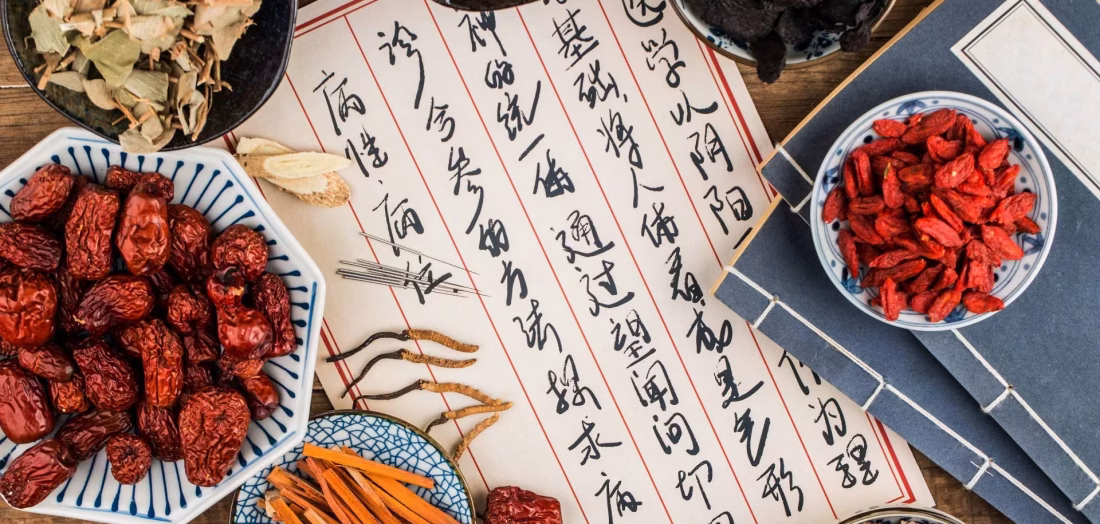 学以阴阳 作为理
基础,将人体看成是气形
神的统一体 通过望闻问切
诊合参的方法探求病
病性病位